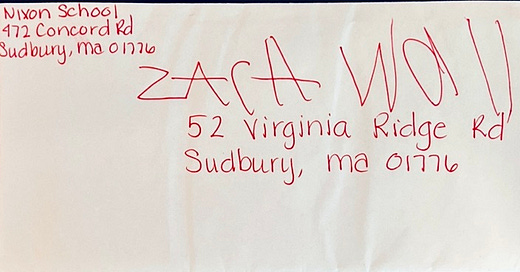 Nixon School
472 Concord Rd
Sudbury, Ma 01776
ZArA WOll
52 Virginia Ridge Rd
Sudbury, ma 01776